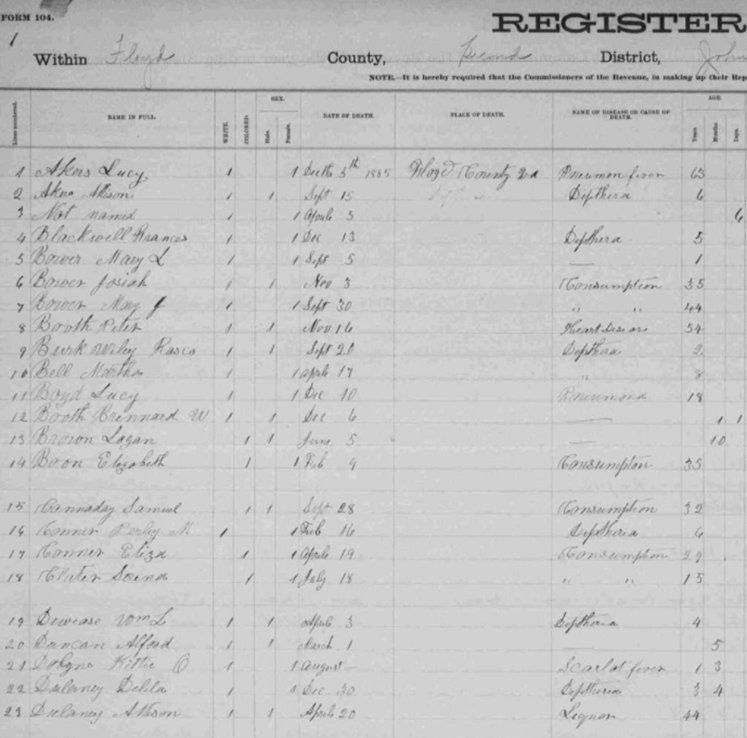 FORM 104.
REGISTER
1
Within Floyd County, Second District, John
NOTE.—It is hereby required that the Commissioners of the Revenue, in making up their Rep
SEX. AGE.
NAME IN FULL. WHITE. COLORED. Male. Female. DATE OF DEATH. PLACE OF DEATH. NAME OF DISEASE OR CAUSE OF DEATH. Years Months. Days.
1 Akers Lucy 1 1 5th 1885 Floyd County 2d fever 63
2 Akers Allison 1 1 Sept 15 Depthera 6
3 Not named 1 1 April 5 6
4 Blackwell Frances 1 1 Dec 13 Depthera 5
5 Bower Mary L 1 1 Sept 5 — 1
6 Bower Josiah 1 1 Nov 3 Consumption 35
7 Bower May J 1 1 Sept 30 " " 44
8 Booth Peter 1 1 Nov 16 Heart Disease 54
9 Burk Wiley 1 1 Sept 20 Depthera 2
10 Bell Martha 1 1 April 17 " 8
11 Boyd Lucy 1 1 Dec 10 18
12 Booth W 1 1 Dec 6 — 1 1
13 Brown Logan 1 1 June 5 — 10
14 Boon Elizabeth 1 1 Feb 9 Consumpton 35
15 Cannaday Samuel 1 1 Sept 28 Consumption 32
16 Conner M 1 1 Feb 16 Deptheria 6
17 Conner Eliza 1 1 April 19 Consumption 29
18 1 1 July 18 " " 15
19 Wm L 1 1 April 3 Deptheria 4
20 Duncan Alford 1 1 March 1 — 5
21 Kittie O 1 1 August — Scarlat fever 1 3
22 Dulaney Delila 1 1 Dec 30 Deptheria 3 4
23 Dulaney Allison 1 1 April 20 44